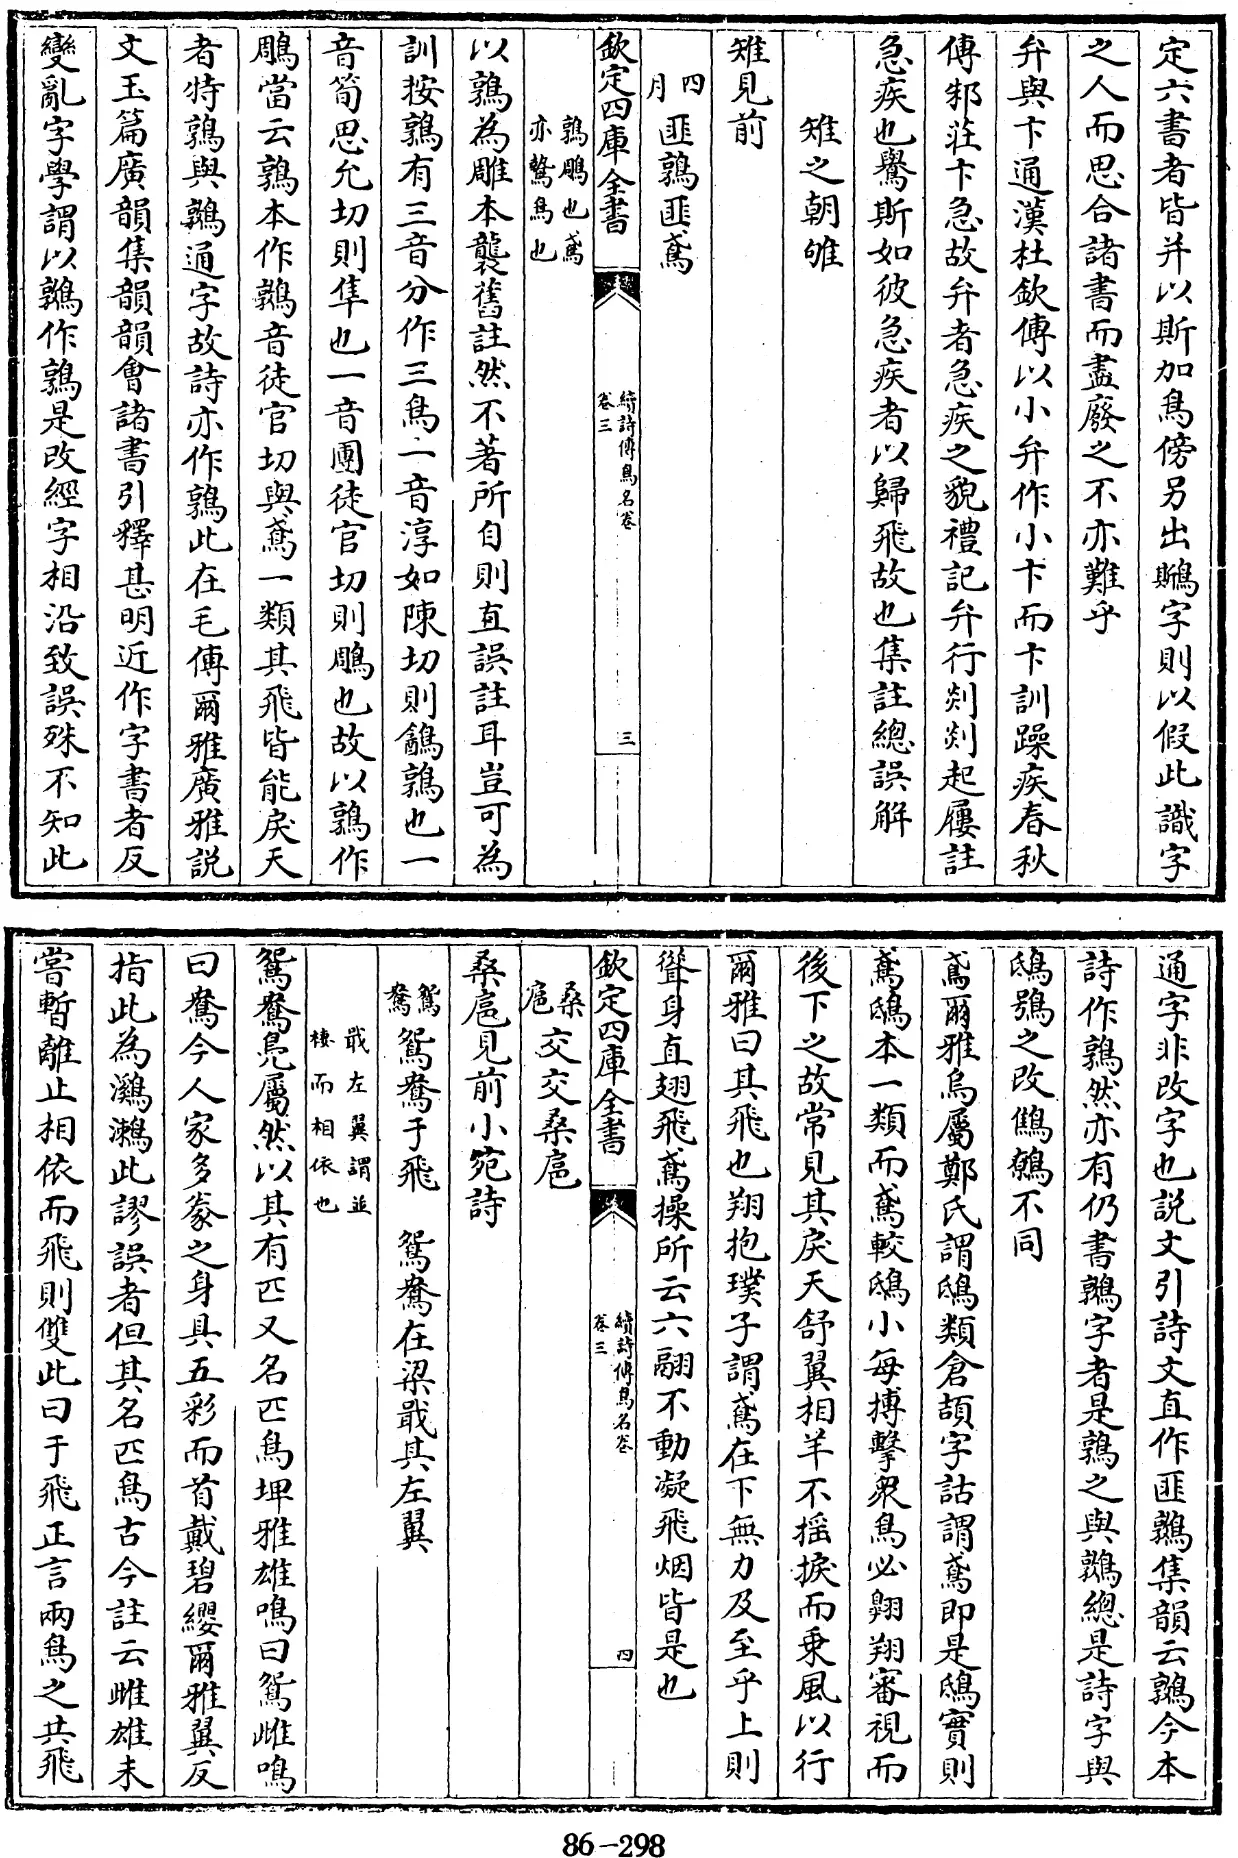 定六書者皆并以斯加鳥傍另出鷉字則以假此識字
之人而思合諸書而盡廢之不亦難乎
弁與卞通漢杜欽傳以小弁作小卞而卞訓躁疾春秋
傳邾莊卞急故弁者急疾之貌禮記弁行剡剡起屨註
急疾也鸒斯如彼急疾者以歸飛故也集註總誤解
雉之朝雊
雉見前
四月 匪鶉匪鳶
鶉鵰也鳶
亦鷙鳥也
欽定四庫全書
續詩傳鳥名卷
卷三
三
以鶉為雕本襲舊註然不著所自則直誤註耳豈可為
訓按鶉有三音分作三鳥一音淳如陳切則鷂鶉也一
音筍思允切則隼也一音團徒官切則鵰也故以鶉作
鵰當云鶉本作鷻音徒官切與鳶一類其飛皆能戾天
者特鶉與鷻通字故詩亦作鶉此在毛傳爾雅廣雅説
文玉篇廣韻集韻韻會諸書引釋甚明近作字書者反
變亂字學謂以鷻作鶉是改經字相沿致誤殊不知此
通字非改字也説文引詩文直作匪鷻集韻云鶉今本
詩作鶉然亦有仍書鷻字者是鶉之與鷻總是詩字與
鴟鴞之改鵂鶹不同
鳶爾雅烏屬鄭氏謂鴟類倉頡字詁謂鳶即是鴟實則
鳶鴟本一類而鳶較鴟小每搏擊衆鳥必翺翔審視而
後下之故常見其戾天舒翼相羊不揺捩而乗風以行
爾雅曰其飛也翔抱璞子謂鳶在下無力及至乎上則
聳身直翅飛鳶操所云六翮不動凝飛烟皆是也
欽定四庫全書
續詩傳鳥名卷
卷三
四
桑扈 交交桑扈
桑扈見前小宛詩
鴛鴦 鴛鴦于飛 鴛鴦在梁戢其左翼
戢左翼謂並
棲而相依也
鴛鴦鳬屬然以其有匹又名匹鳥埤雅雄鳴曰鴛雌鳴
曰鴦今人家多豢之身具五彩而首戴碧纓爾雅翼反
指此為鸂鶒此謬誤者但其名匹鳥古今註云雌雄未
嘗暫離止相依而飛則雙此曰于飛正言兩鳥之共飛
86-298